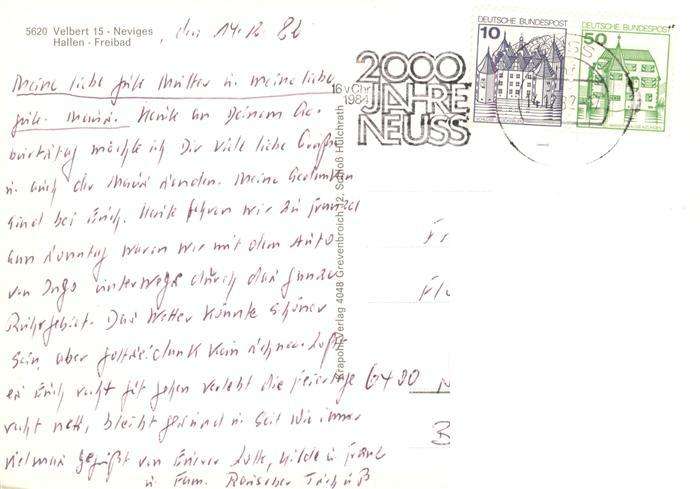 5620 Velbert 15 - Neviges
Hallen - Freibad
, den 14.12 82
Meine liebe gute Mutter u meine liebe
gute Heute an Deinem Ge-
burtstag möchte ich Dir viele liebe Grüße
u auch der senden. Meine Gedanken
sind bei Euch. Heute fahren wir zu Franzel
am Sonntag waren wir mit dem Auto
von Ingo unterwegs durch das ganze
Ruhrgebiet. Das Wetter könnte schöner
sein, aber gottseidank kein Schnee. Laßt
es Euch recht gut gehen verlebt die Feiertage
recht nett, bleibt gesund u seit wie immer
vielmals gegrüßt von Eurer Lotte, Hilde u Franz
u Fam.
2000
JAHRE
NEUSS
16 v Chr
1984
DEUTSCHE BUNDESPOST
10
DEUTSCHE BUNDESPOST
50
14.12.82
Krapohl-Verlag 4048 Grevenbroich 12, Schloß Hülchrath
Fr
Fl
6430